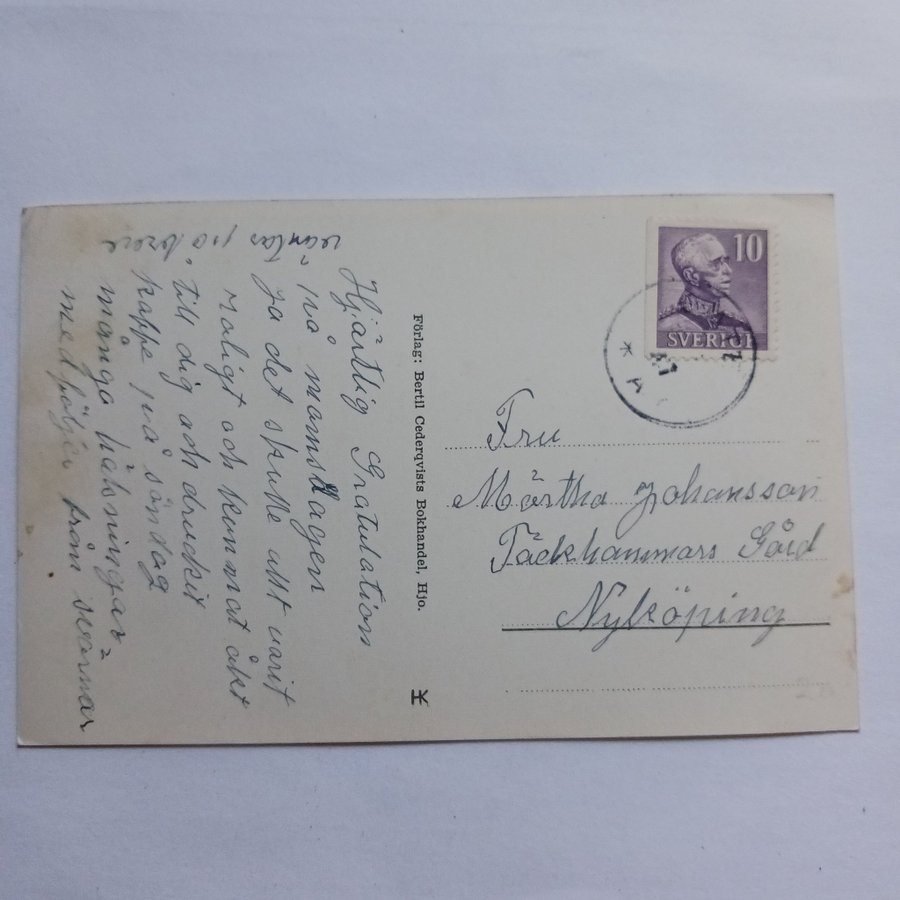 Hjärtlig Gratulation
på namsdagen
Ja det skulle allt varit
roligt och kunnat åkt
till dig och druckit
kaffe på söndag
många hälsningar
medföljer från svärmor
väntas på breve
Förlag: Bertil Cederqvists Bokhandel, Hjo.
10
SVERIGE
Fru
Märtha Johansson
Täckhammars Gård
Nyköping